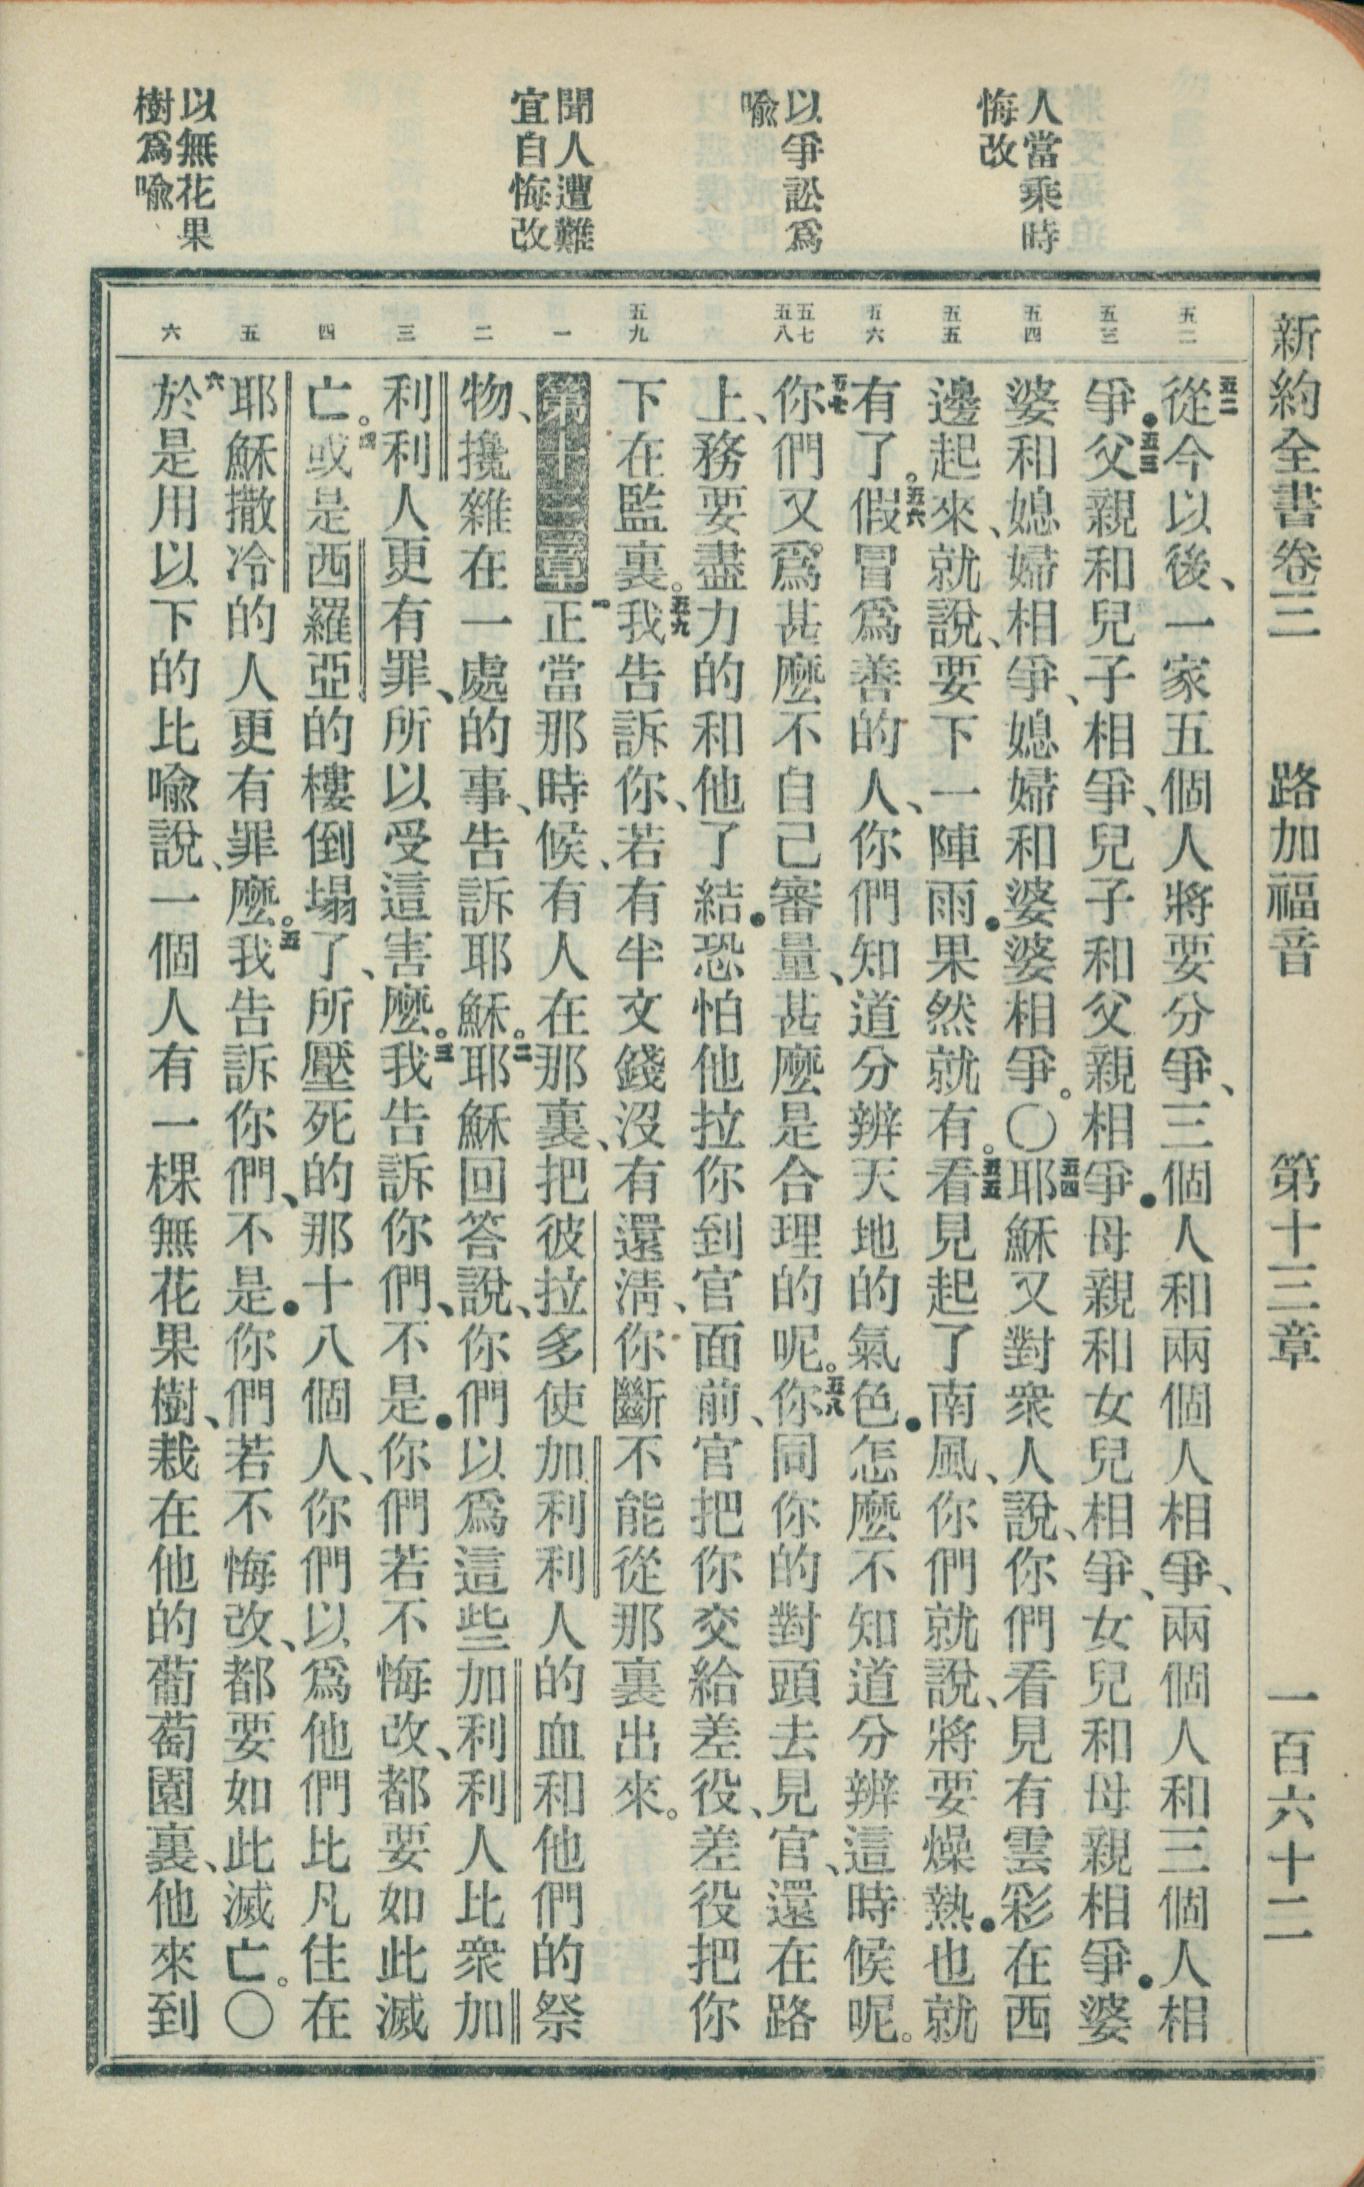 新約全書卷三　路加福音　第十三章　一百六十二
人當乘時
悔改
以爭訟爲
喩
聞人遭難
宜自悔改
以無花果
樹爲喩
五二
五三
五四
五五
五六
五七
五八
五九
一
二
三
四
五
六
五二從今以後、一家五個人將要分爭、三個人和兩個人相爭、兩個人和三個人相
爭●五三父親和兒子相爭、兒子和父親相爭●母親和女兒相爭、女兒和母親相爭●婆
婆和媳婦相爭、媳婦和婆婆相爭。〇五四耶穌又對衆人說、你們看見有雲彩在西
邊起來、就說、要下一陣雨●果然就有。五五看見起了南風、你們就說、將要燥熱●也就
有了。五六假冒爲善的人、你們知道分辨天地的氣色●怎麽不知道分辨這時候呢。
五七你們又爲甚麽不自己審量、甚麽是合理的呢。五八你同你的對頭去見官、還在路
上、務要盡力的和他了結●恐怕他拉你到官面前、官把你交給差役、差役把你
下在監裏。五九我告訴你、若有半文錢沒有還淸、你斷不能從那裏出來。
第十三章一正當那時候、有人在那裏、把彼拉多使加利利人的血和他們的祭
物、攙雜在一處的事、告訴耶穌。二耶穌回答說、你們以爲這些加利利人比衆加
利利人更有罪、所以受這害麽。三我告訴你們、不是●你們若不悔改、都要如此滅
亡。四或是西羅亞的樓倒塌了、所壓死的那十八個人、你們以爲他們比凡住在
耶穌撒冷的人更有罪麽。五我告訴你們、不是●你們若不悔改、都要如此滅亡。〇
六於是用以下的比喩說、一個人有一棵無花果樹、栽在他的葡萄園裏、他來到